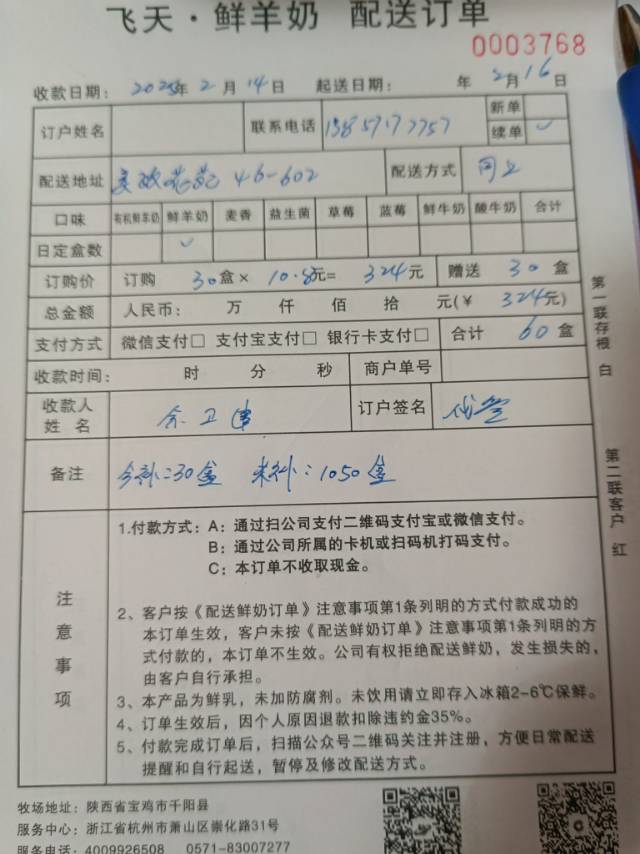 飞天·鲜羊奶 配送订单
0003768
收款日期: 2025年2月14日 起送日期: 年2月16日
订户姓名 联系电话 新单
续单 ✓
配送地址 46-602 配送方式 同上
口味 有机鲜羊奶 鲜羊奶 麦香 益生菌 草莓 蓝莓 鲜牛奶 酸牛奶 合计
日定盒数 ✓
订购价 订购 30盒× 10.8元= 324元 赠送 30盒
总金额 人民币: 万 仟 佰 拾 元(¥ 324元)
支付方式 微信支付□ 支付宝支付□ 银行卡支付□ 合计 60盒
收款时间: 时 分 秒 商户单号
收款人 姓名 余卫 订户签名
备注 今补:30盒 未补:1050盒
注意事项
1.付款方式:A:通过扫公司支付二维码支付宝或微信支付。
B:通过公司所属的卡机或扫码机打码支付。
C:本订单不收取现金。
2、客户按《配送鲜奶订单》注意事项第1条列明的方式付款成功的
本订单生效,客户未按《配送鲜奶订单》注意事项第1条列明的方
式付款的,本订单不生效。公司有权拒绝配送鲜奶,发生损失的,
由客户自行承担。
3、本产品为鲜乳,未加防腐剂。未饮用请立即存入冰箱2-6℃保鲜。
4、订单生效后,因个人原因退款扣除违约金35%。
5、付款完成订单后,扫描公众号二维码关注并注册,方便日常配送
提醒和自行起送,暂停及修改配送方式。
第一联存根 白
第二联客户 红
牧场地址:陕西省宝鸡市千阳县
服务中心:浙江省杭州市萧山区崇化路31号
服务电话:4009926508 0571-83007277